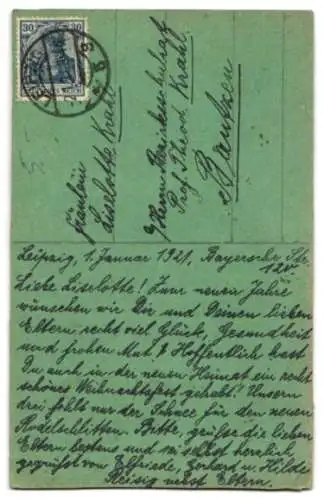 30 30
Fräulein
Liselotte Krahl
Herrn Bezirksschulrat
Prof. Theod. Krahl
Bautzen
Leipzig, 1. Januar 1921, Bayersche Str.
Liebe Liselotte! Zum neuen Jahre
wünschen wir Dir und Deinen lieben
Eltern recht viel Glück, Gesundheit
und frohen Mut. Hoffentlich hast
Du auch in der neuen Heimat ein recht
schönes Weihnachtsfest gehabt! Unsern
drei fehlt nur der Schnee für den neuen
Rodelschlitten. Bitte, grüße die lieben
Eltern bestens und sei selbst herzlich
gegrüßt von Elfriede, Gerhard u. Hilde
Reisig nebst Eltern.